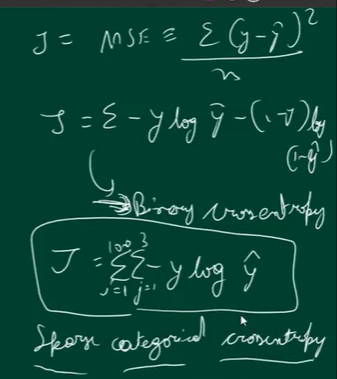 J = MSE = Σ(y-ŷ)²
n
J = Σ - y log ŷ - (1-y) log
(1-ŷ)
Binary crossentropy
100 3
J = Σ Σ - y log ŷ
i=1 j=1
Sparse categorical crossentropy